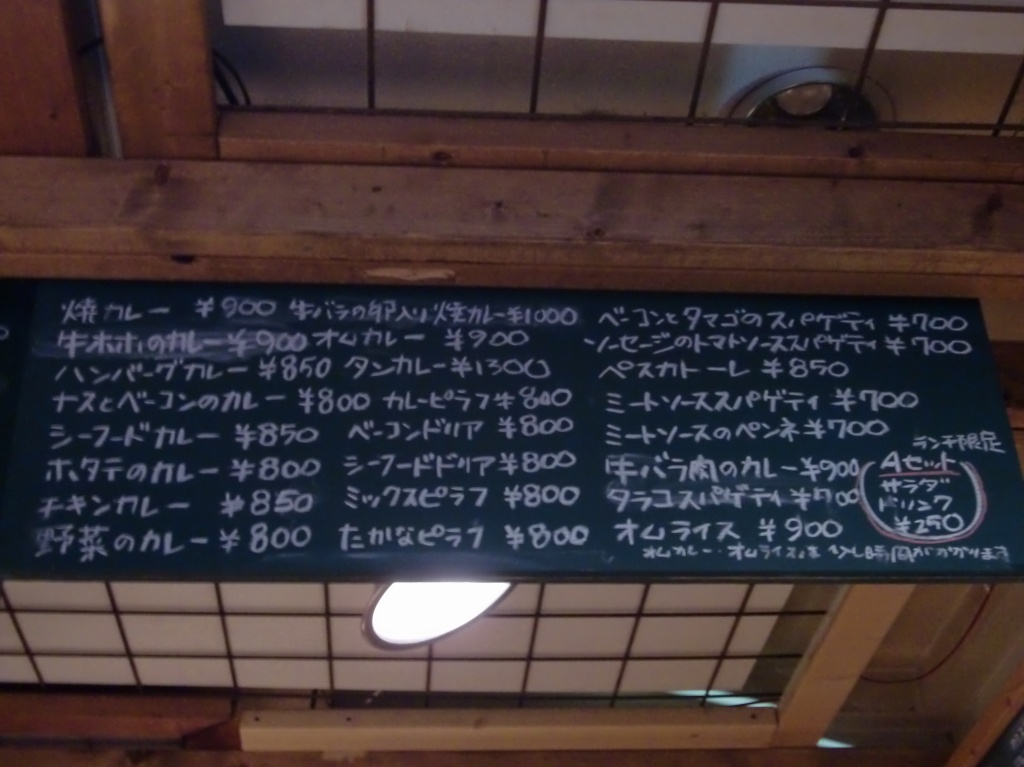 焼カレー ¥900
牛ホホのカレー ¥900
ハンバーグカレー ¥850
ナスとベーコンのカレー ¥800
シーフードカレー ¥850
ホタテのカレー ¥800
チキンカレー ¥850
野菜のカレー ¥800
牛バラの卵入り焼カレー ¥1000
オムカレー ¥900
タンカレー ¥1300
カレーピラフ ¥800
ベーコンドリア ¥800
シーフードドリア ¥800
ミックスピラフ ¥800
たかなピラフ ¥800
ベーコンとタマゴのスパゲティ ¥700
ソーセージのトマトソーススパゲティ ¥700
ペスカトーレ ¥850
ミートソーススパゲティ ¥700
ミートソースのペンネ ¥700
牛バラ肉のカレー ¥900
タラコスパゲティ ¥700
オムライス ¥900
オムカレー・オムライスは少し時間がかかります
ランチ限定
Aセット
サラダ
ドリンク
¥250